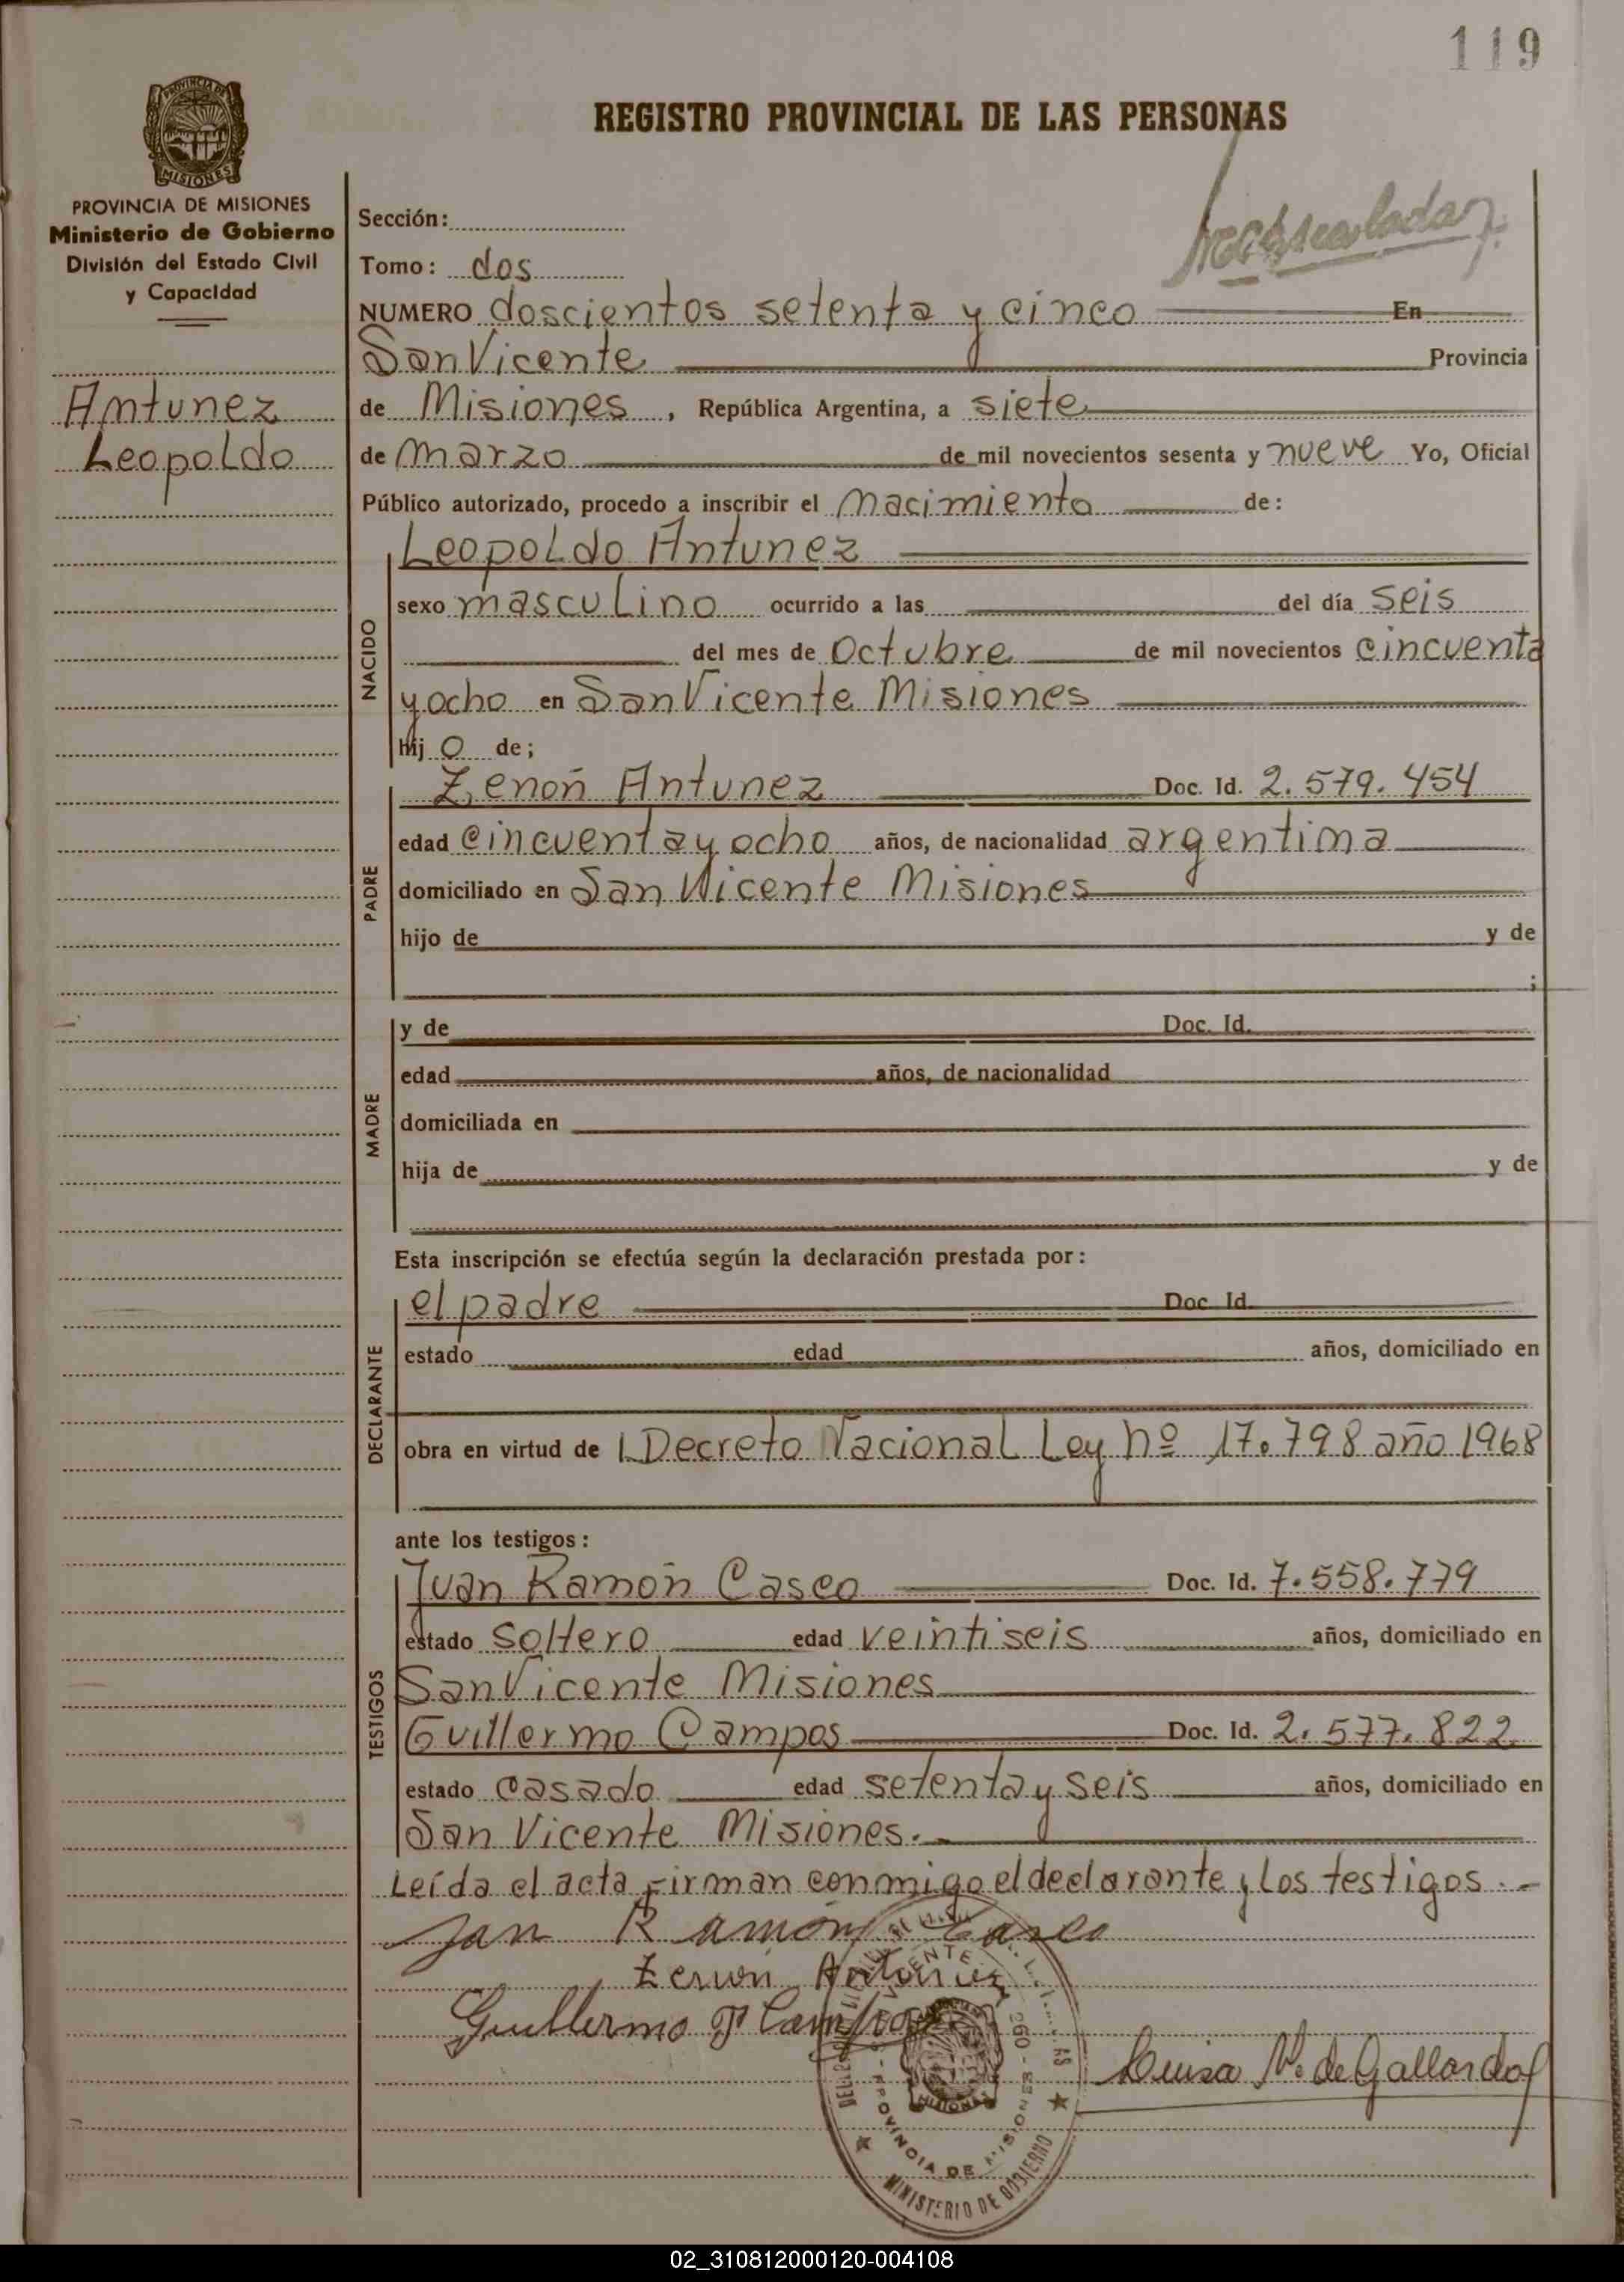 119
REGISTRO PROVINCIAL DE LAS PERSONAS
PROVINCIA DE
MISIONES
PROVINCIA DE MISIONES
Ministerio de Gobierno
División del Estado Civil
y Capacidad
Antunez
Leopoldo
Sección:
Tomo: dos
NUMERO doscientos setenta y cinco En
San Vicente Provincia
de Misiones, República Argentina, a siete
de marzo de mil novecientos sesenta y nueve Yo, Oficial
Público autorizado, procedo a inscribir el nacimiento de:
NACIDO
Leopoldo Antunez
sexo masculino ocurrido a las del día seis
del mes de Octubre de mil novecientos cincuenta
y ocho en San Vicente Misiones
hij o de;
PADRE
Zenón Antunez Doc. Id. 2.579.454
edad cincuenta y ocho años, de nacionalidad argentina
domiciliado en San Vicente Misiones
hijo de y de
;
MADRE
y de Doc. Id.
edad años, de nacionalidad
domiciliada en
hija de y de
Esta inscripción se efectúa según la declaración prestada por:
DECLARANTE
el padre Doc. Id.
estado edad años, domiciliado en
obra en virtud de l Decreto Nacional Ley nº 17.798 año 1968
ante los testigos:
TESTIGOS
Juan Ramón Casco Doc. Id. 7.558.779
estado soltero edad veintiseis años, domiciliado en
San Vicente Misiones
Guillermo Campos Doc. Id. 2.577.822
estado casado edad setenta y seis años, domiciliado en
San Vicente Misiones.-
Leída el acta, firman conmigo el declarante y los testigos.-
Juan Ramón Casco
Zenón Antunez
Guillermo Campos
Luisa de Gallardo
VICENTE
PROVINCIA DE MISIONES
MINISTERIO DE GOBIERNO
MISIONES
02_310812000120-004108